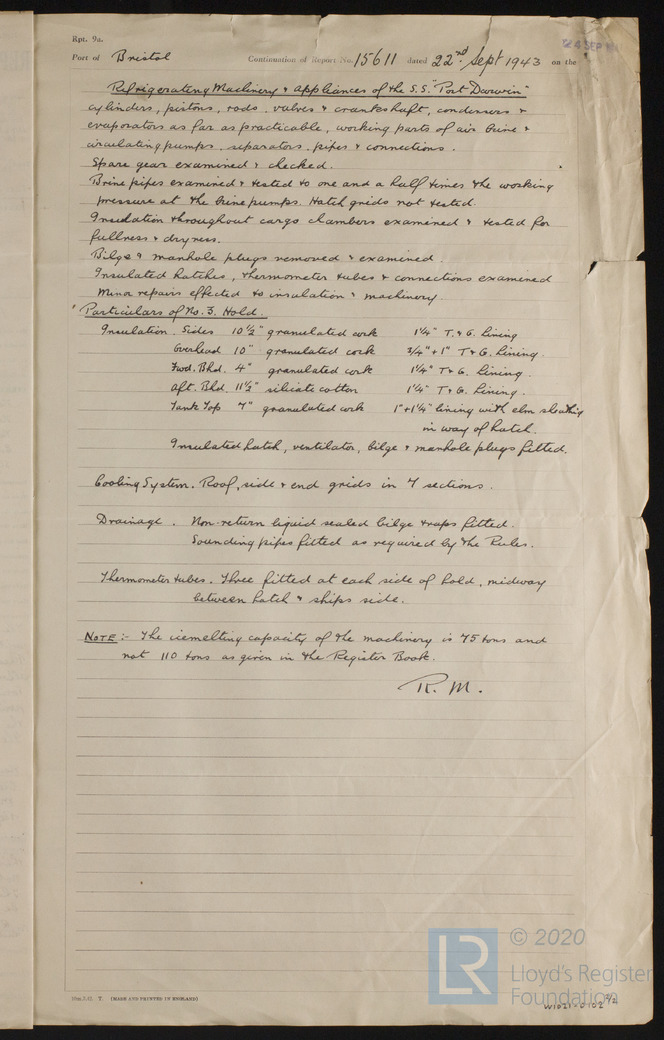 Rpt. 9a.
24 SEP
Port of Bristol Continuation of Report No. 15611 dated 22nd Sept 1943 on the
Refrigerating Machinery & appliances of the S.S. "Port Darwin"
cylinders, pistons, rods, valves & crankshaft, condensers &
evaporators as far as practicable, working parts of air brine &
circulating pumps, separators, pipes & connections.
Spare gear examined & checked.
Brine pipes examined & tested to one and a half times the working
pressure at the brine pumps. Hatch grids not tested.
Insulation throughout cargo chambers examined & tested for
fullness & dryness.
Bilge & manhole plugs removed & examined.
Insulated hatches, thermometer tubes & connections examined
Minor repairs effected to insulation & machinery.
Particulars of No. 3. Hold.
Insulation. Sides 10½" granulated cork 1¼" T. & G. Lining
Overhead 10" granulated cork ¾" + 1" T & G. Lining.
Fwd. Bhd. 4" granulated cork 1¼" T & G. Lining.
Aft. Bhd. 11½" silicate cotton 1¼" T & G. Lining.
Tank Top 7" granulated cork 1" + 1¼" lining with elm sheathing
in way of hatch.
Insulated hatch, ventilator, bilge & manhole plugs fitted.
Cooling System. Roof, side & end grids in 7 sections.
Drainage. Non-return liquid sealed bilge traps fitted.
Sounding pipes fitted as required by the Rules.
Thermometer tubes. Three fitted at each side of hold, midway
between hatch & ships side.
NOTE :- The icemelting capacity of the machinery is 75 tons and
not 110 tons as given in the Register Book.
R. M.
T. (MADE AND PRINTED IN ENGLAND)
LR © 2020
Lloyd's Register
Foundation
W1021-0102 2/2